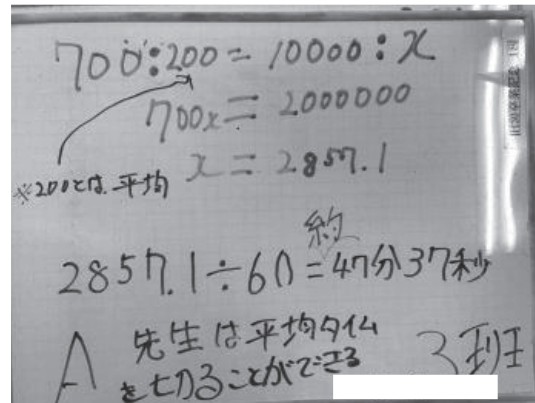 700:200=10000:x
700x=2000000
※200とは、平均
x=2857.1
約
2857.1÷60=47分37秒
A 先生は平均タイム
を切ることができる
3班